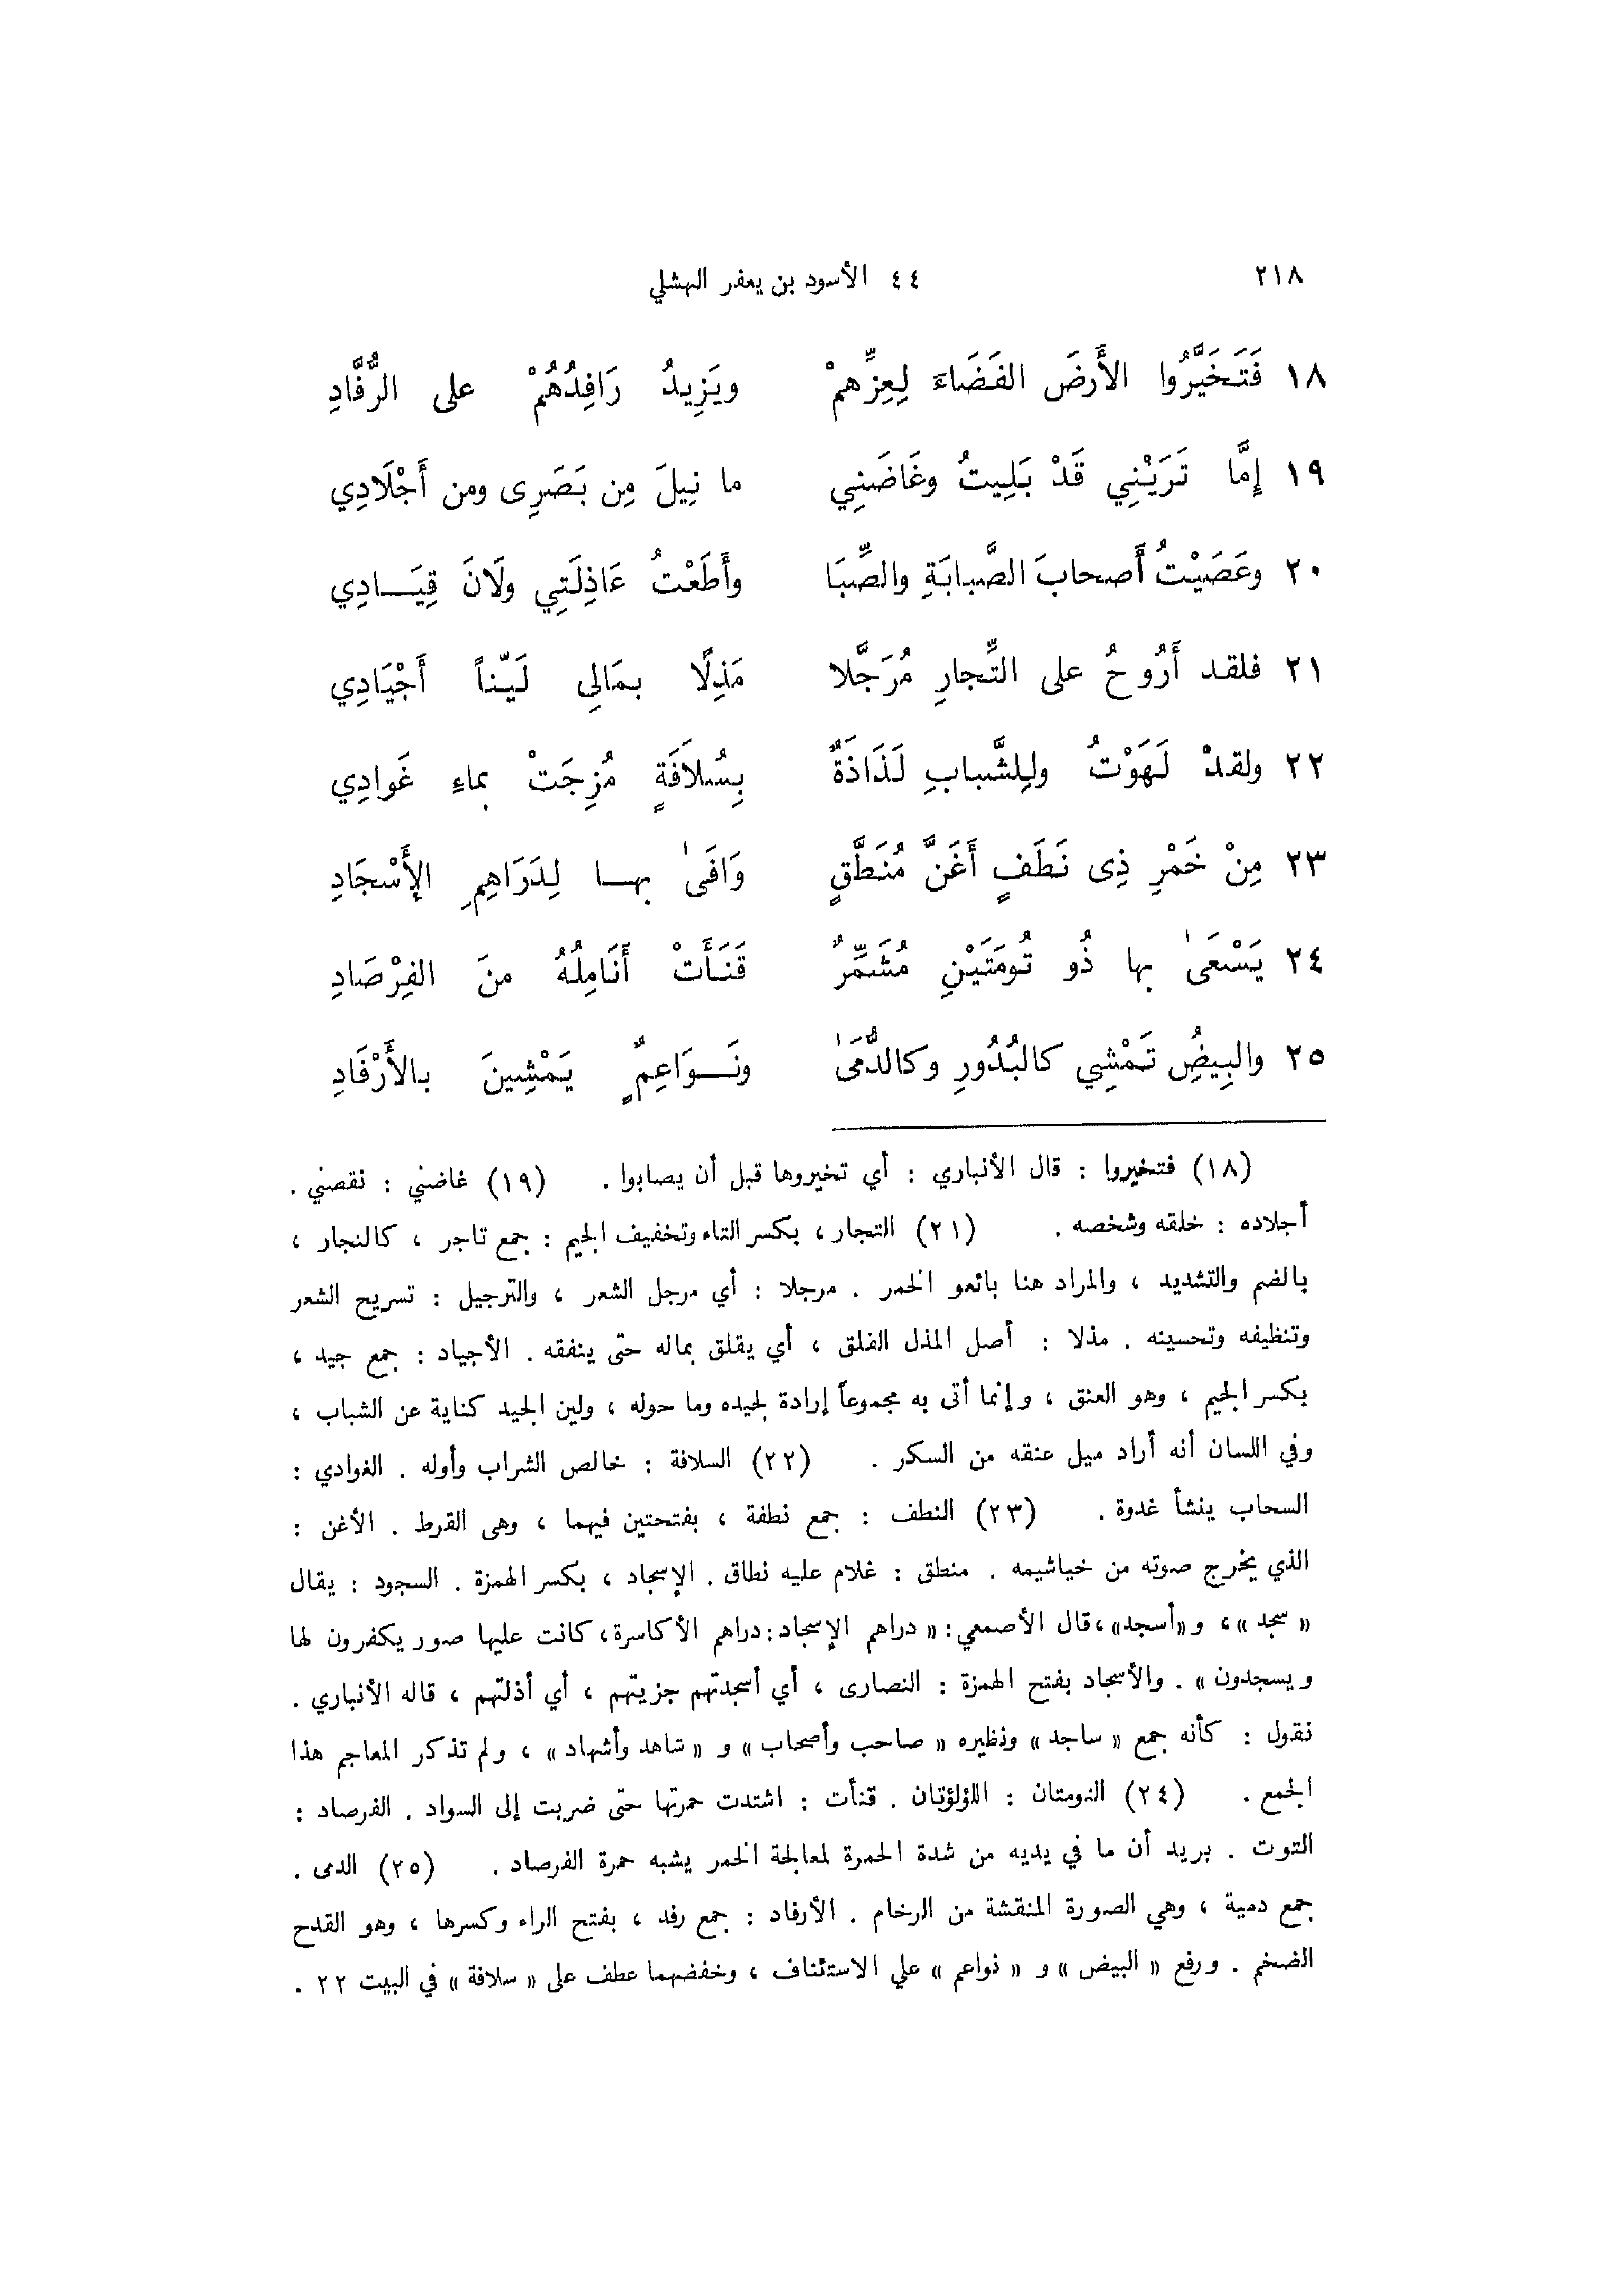 ٢١٨ ٤٤ الأسود بن يعفر النهشلي
١٨ فَتَخَيَّرُوا الأَرضَ الفَضَاءَ لِعِزِّهِمْ ويَزِيدُ رَافِدُهُمْ على الرُّفَّادِ
١٩ إِمَّا تَرَيْنِي قَدْ بَلِيتُ وغَاضَنِي ما نِيلَ مِن بَصَرِى ومن أَجْلَادِي
٢٠ وعَصَيْتُ أَصحابَ الصَّبابَةِ والصِّبَا وأَطَعْتُ عَاذِلَتِي ولَانَ قِيَادِي
٢١ فلقد أَرُوحُ على التِّجارِ مُرَجَّلا مَذِلًا بمَالِى لَيّناً أَجْيَادِي
٢٢ ولقدْ لَهَوْتُ ولِلشَّبابِ لَذَاذَةٌ بِسُلاَفَةٍ مُزِجَتْ بماءِ غَوادِي
٢٣ مِنْ خَمْرِ ذِى نَطَفٍ أَغَنَّ مُنَطَّقٍ وَافَىٰ بها لِدَرَاهِمِ الإِسْجَادِ
٢٤ يَسْعَىٰ بها ذُو تُومَتَيْنِ مُشَمِّرٌ قَنَأَتْ أَنَامِلُهُ منَ الفِرْصَادِ
٢٥ والبِيضُِ تَمْشِي كالبُدُورِ وكالدُّمَىٰ ونَوَاعِمٌٍ يَمْشِينَ بالأَرْفَادِ
(١٨) فتخيروا : قال الأنباري : أي تخيروها قبل أن يصابوا . (١٩) غاضني : نقصني .
أجلاده : خلقه وشخصه . (٢١) التجار ، بكسر التاء وتخفيف الجيم : جمع تاجر ، كالتجار ،
بالضم والتشديد ، والمراد هنا بائعو الخمر . مرجلا : أي مرجل الشعر ، والترجيل : تسريح الشعر
وتنظيفه وتحسينه . مذلا : أصل المذل القلق ، أي يقلق بماله حتى ينفقه . الأجياد : جمع جيد ،
بكسر الجيم ، وهو العنق ، وإنما أتى به مجموعاً إرادة لجيده وما حوله ، ولين الجيد كناية عن الشباب ،
وفي اللسان أنه أراد ميل عنقه من السكر . (٢٢) السلافة : خالص الشراب وأوله . الغوادي :
السحاب ينشأ غدوة . (٢٣) النطف : جمع نطفة ، بفتحتين فيهما ، وهى القرط . الأغن :
الذي يخرج صوته من خياشيمه . منطق : غلام عليه نطاق . الإسجاد ، بكسر الهمزة . السجود : يقال
« سجد » ، و «أسجد» ، قال الأصمعي : « دراهم الإسجاد : دراهم الأكاسرة ، كانت عليها صور يكفرون لها
ويسجدون » . والأسجاد بفتح الهمزة : النصارى ، أي أسجدتهم جزيتهم ، أي أذلتهم ، قاله الأنباري .
نقول : كأنه جمع « ساجد » ونظيره « صاحب وأصحاب » و « شاهد وأشهاد » ، ولم تذكر المعاجم هذا
الجمع . (٢٤) التومتان : اللؤلؤتان . قنأت : اشتدت حمرتها حتى ضربت إلى السواد . الفرصاد :
التوت . يريد أن ما في يديه من شدة الحمرة لمعالجة الخمر يشبه حمرة الفرصاد . (٢٥) الدمى .
جمع دمية ، وهي الصورة المنقشة من الرخام . الأرفاد : جمع رفد ، بفتح الراء وكسرها ، وهو القدح
الضخم . ورفع « البيض » و « نواعم » علي الاستئناف ، وخفضهما عطف على « سلافة » في البيت ٢٢ .